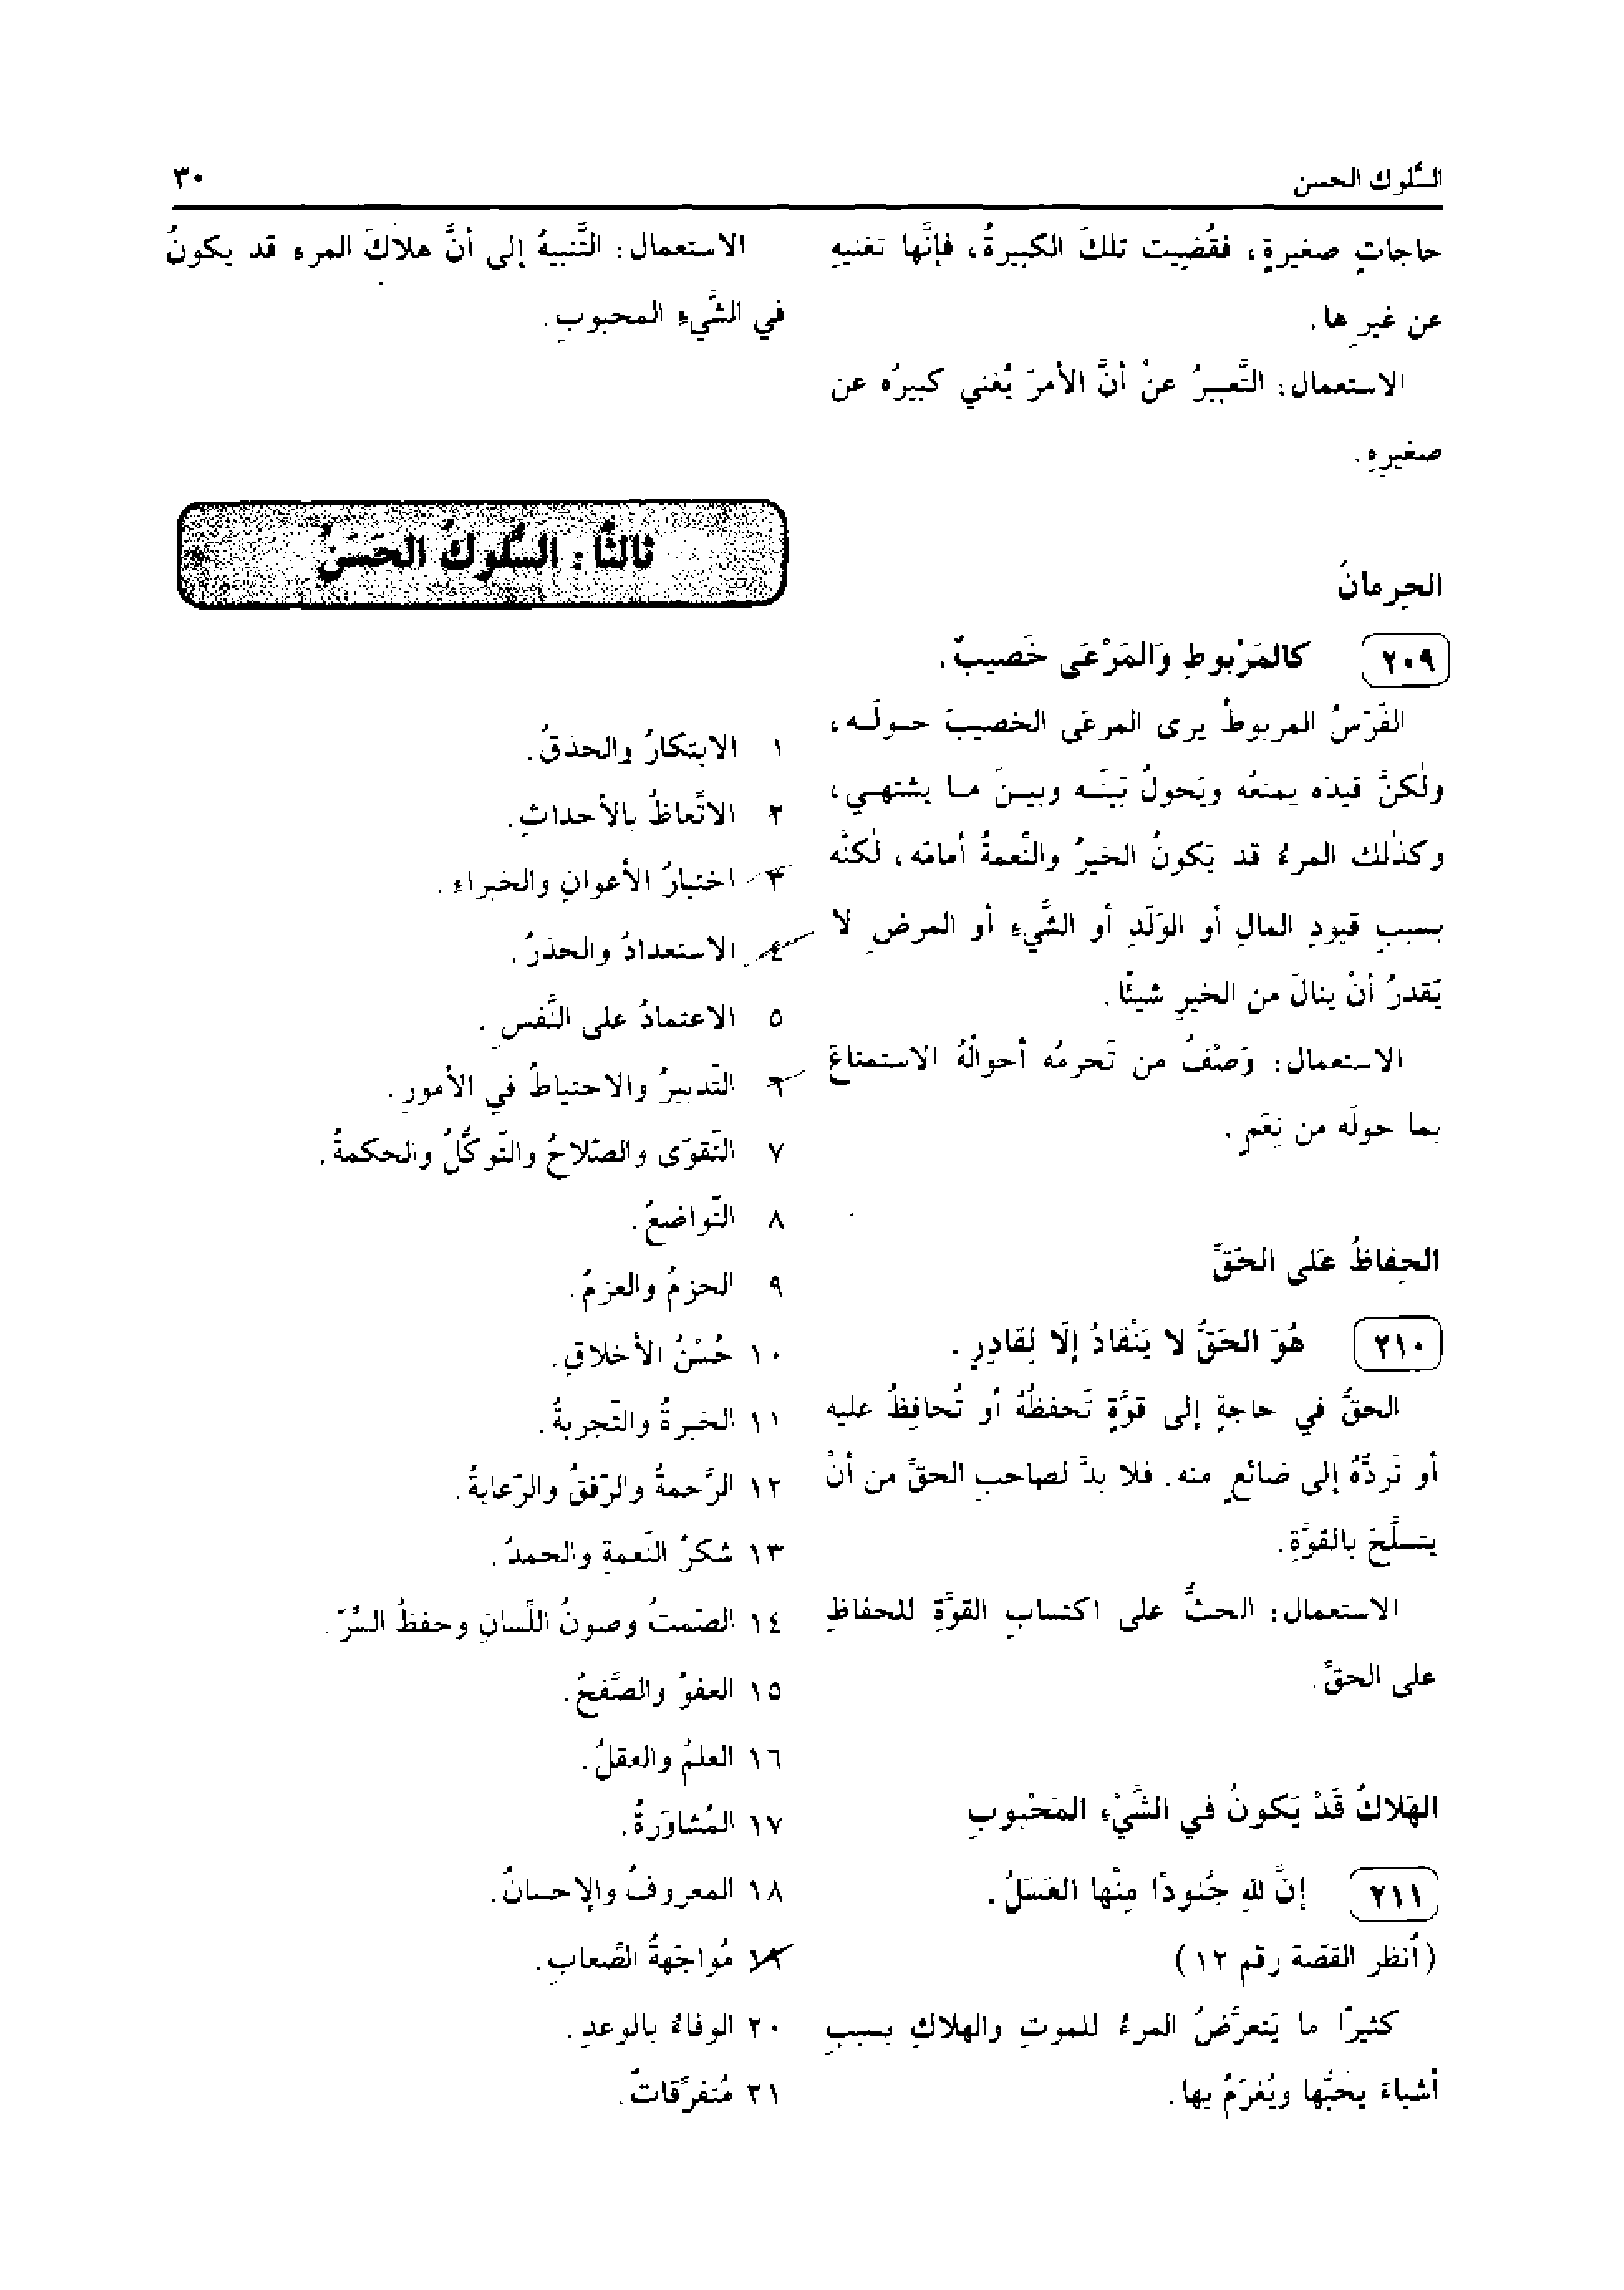 السُّلوك الحسن
٣٠
حاجاتٍ صغيرةٍ، فقُضِيت تلكَ الكبيرةُ، فإنَّها تغنيهِ
عن غيرِها.
الاستعمال: التَّعبيرُ عنْ أنَّ الأمرَ يُغني كبيرُه عن
صغيرِهِ.
الحِرمانُ
٢٠٩ كالمَرْبوطِ وَالمَرْعَى خَصيبٌ.
الفَرَسُ المربوطُ يرى المرعَى الخصيبَ حولَه،
ولٰكنَّ قيدَه يمنعُه ويَحولُ بَينَه وبينَ ما يشتهي،
وكذٰلك المرءُ قد يَكونُ الخيرُ والنِّعمةُ أمامَه، لٰكنَّه
بسببِ قيودِ المالِ أو الوَلَدِ أو الشَّيءِ أو المرضِ لا
يَقدرُ أنْ ينالَ من الخيرِ شيئًا.
الاستعمال: وَصْفُ من تَحرمُه أحوالُهُ الاستمتاعَ
بما حولَه من نِعَمٍ.
الحِفاظُ عَلى الحَقِّ
٢١٠ هُوَ الحَقُّ لا يَنْقادُ إلَّا لِقادِرٍ.
الحقُّ في حاجةٍ إلى قوَّةٍ تَحفظُهُ أو تُحافِظُ عليه
أو تَردُّهُ إلى ضائعٍ منه. فلا بدَّ لصاحبِ الحقِّ من أنْ
يتسلَّحَ بالقوَّةِ.
الاستعمال: الحثُّ على اكتسابِ القوَّةِ للحفاظِ
على الحقِّ.
الهَلاكُ قَدْ يَكونُ في الشَّيْءِ المَحْبوبِ
٢١١ إنَّ للهِ جُنودًا مِنْها العَسَلُ.
(أنظر القصّة رقم ١٢)
كثيرًا ما يَتعرَّضُ المرءُ للموتِ والهلاكِ بسببِ
أشياءَ يحَبُّها ويُغرَمُ بها.
الاستعمال: التَّنبيهُ إلى أنَّ هلاكَ المرءِ قد يكونُ
في الشَّيءِ المحبوبِ.
ثالثًا: السُّلوكُ الحَسَنُ
١ الابتكارُ والحذقُ.
٢ الاتِّعاظُ بالأحداثِ.
٣ اختيارُ الأعوانِ والخبراءِ.
٤ الاستعدادُ والحذرُ.
٥ الاعتمادُ على النَّفسِ.
٦ التَّدبيرُ والاحتياطُ في الأمورِ.
٧ التَّقوَى والصَّلاحُ والتَّوكُّلُ والحكمةُ.
٨ التَّواضعُ.
٩ الحزمُ والعزمُ.
١٠ حُسْنُ الأخلاقِ.
١١ الخبرةُ والتَّجربةُ.
١٢ الرَّحمةُ والرِّفقُ والرِّعايةُ.
١٣ شكرُ النِّعمةِ والحمدُ.
١٤ الصَّمتُ وصونُ اللِّسانِ وحفظُ السِّرِّ.
١٥ العفوُ والصَّفحُ.
١٦ العلمُ والعقلُ.
١٧ المُشاوَرةُ.
١٨ المعروفُ والإحسانُ.
١٩ مُواجَهةُ الصِّعابِ.
٢٠ الوفاءُ بالوعدِ.
٢١ مُتفرِّقاتٌ.